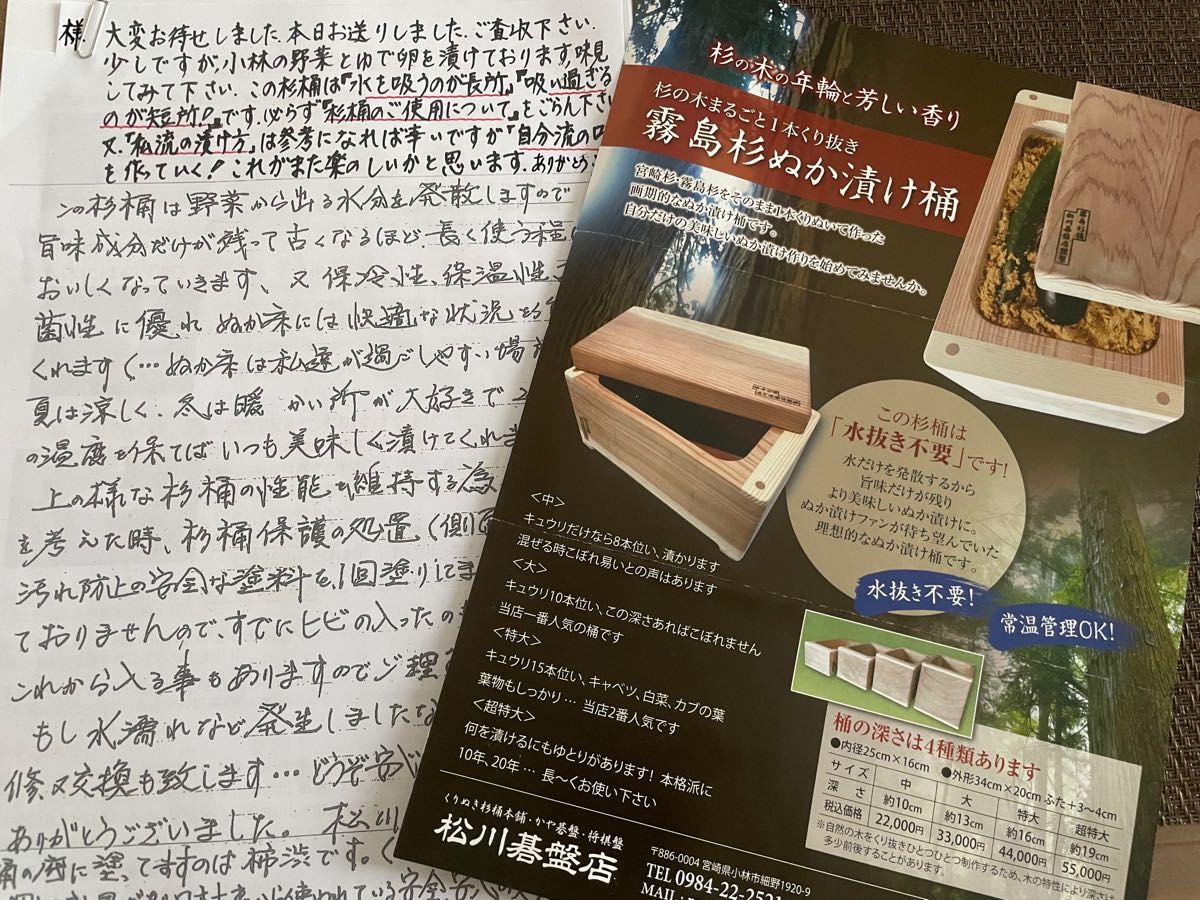 様.
大変お待せしました.本日お送りしました.ご査収下さい.
少しですが,小林の野菜とゆで卵を漬けております,味見
してみて下さい.この杉桶は『水を吸うのが長所』『吸い過ぎる
のが短所』です.必らず『杉桶のご使用について』をごらん下さい
又.『私流の漬け方』は参考になれば幸いですが『自分流の
を作っていく!これがまた楽のしいかと思います.ありがとうご
この杉桶は野菜から出る水分を発散しますので
旨味成分だけが残って古くなるほど長く使う程
おいしくなっていきます、又保冷性、保温性
菌性に優れぬか床には快適な状況を
くれます(…ぬか床は私達が過ごしやすい場
夏は涼しく.冬は暖かい所が大好きで
の温度を保てばいつも美味しく漬けてくれま
上の様な杉桶の性能を維持する為
を考えた時、杉桶保護の処置(側
汚れ防止の安全な塗料を、1回塗りしてま
ておりませんので、すでにヒビの入ったの
これから入る事もありますのでご理
もし水濡れなど発生しましたな
修又交換も致します…どうぞ
ありがとうございました。松川
桶の底に塗ってますのは柿渋です。(
杉の木の年輪と芳しい香り
杉の木まるごと1本くり抜き
霧島杉ぬか漬け桶
宮崎杉・霧島杉をそのまま1本くりぬいて作った
画期的なぬか漬け桶です。
自分だけの美味しいぬか漬け作りを始めてみませんか。
この杉桶は
「水抜き不要」です!
水だけを発散するから
旨味だけが残り
より美味しいぬか漬けに。
ぬか漬けファンが待ち望んでいた
理想的なぬか漬け桶です。
水抜き不要!
常温管理OK!
<中>
キュウリだけなら8本位い、漬かります
混ぜる時こぼれ易いとの声はあります
<大>
キュウリ10本位い、この深さあればこぼれません
当店一番人気の桶です
<特大>
キュウリ15本位い、キャベツ、白菜、カブの葉
葉物もしっかり… 当店2番人気です
<超特大>
何を漬けるにもゆとりがあります! 本格派に
10年、20年… 長〜くお使い下さい
桶の深さは4種類あります
●内径25cm×16cm ●外形34cm×20cm ふた+3〜4cm
サイズ 中 大 特大 超特大
深さ 約10cm 約13cm 約16cm 約19cm
税込価格 22,000円 33,000円 44,000円 55,000円
※自然の木をくり抜きひとつひとつ制作するため、木の特性により深さは
多少前後することがあります。
くりぬき杉桶本舗・かや碁盤・将棋盤
松川碁盤店
〒886-0004 宮崎県小林市細野1920-9
TEL 0984-22-252
MAIL :